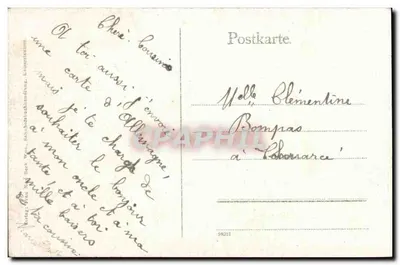 Chère Cousine
A toi aussi j'envoie
une carte d'Allemagne,
mais je te charge de
souhaiter le bonjour
à mon oncle et à ma
tante et à toi
mille baisers
Ta cousine
Postkarte.
Melle Clémentine
Bompas
à
CPAPHIL